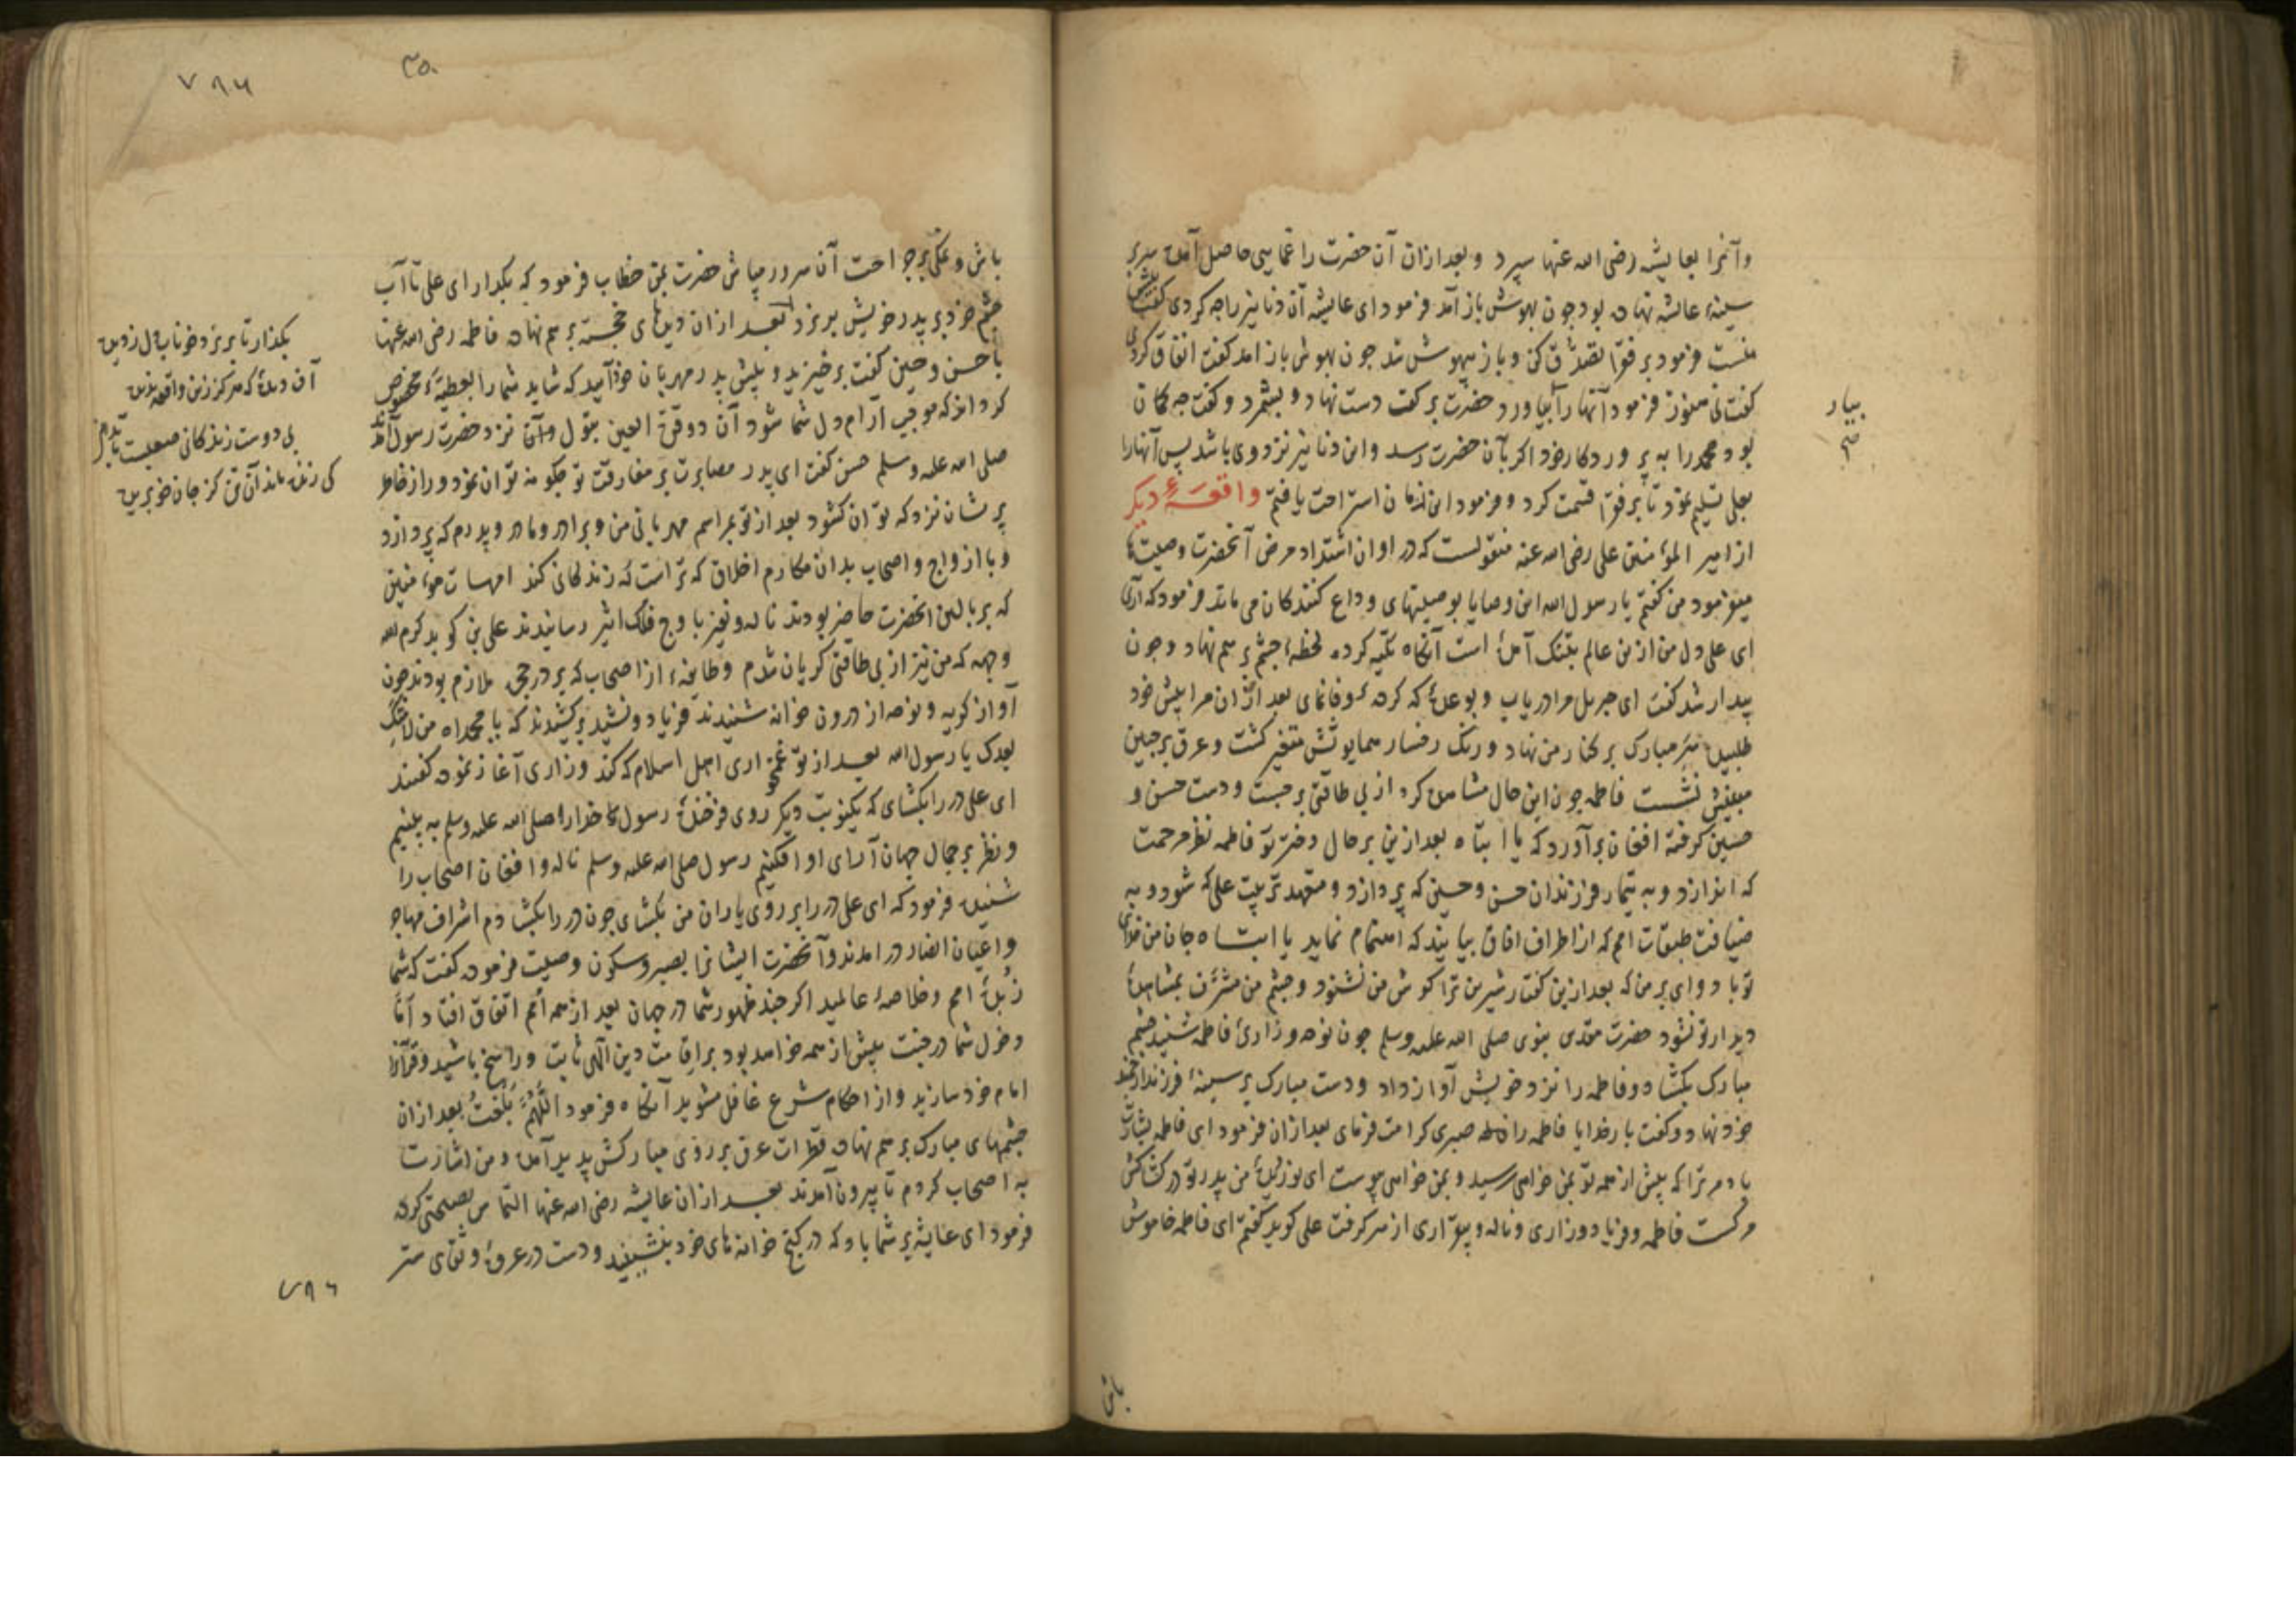 وآنرا بعایشه رضی الله عنها سپرد و بعد ازان آن حضرت را غمایی حاصل آمده سر بر
سینهٔ عایشه نهاده بود چون بهوش باز آمد فرمود ای عایشه آن دنانیر را چه کردی گفت پیش
منست فرمود بر فقرا تصدّق کن و باز بیهوش شد چون بهوش باز امد کفت انفاق کردی
کفت نی هنوز فرمود آنها را بیاورد حضرت بر کف دست نهاد و بشمرد و کفت چه کمان
بیار
بود محمد را به پروردکار خود اکر بآن حضرت رسد و این دنانیر نزد وی باشد پس آنها را
بعلی تسلیم نمود تا بر فقرا قسمت کرد و فرمود این زمان استراحت یافتم واقعهٔ دیکر
از امیر المؤمنین علی رضی الله عنه منقولست که در اوان اشتداد مرض آنحضرت وصیتها
میفرمود من کفتم یا رسول الله این وصایا بوصیتهای وداع کنندکان می ماند فرمود که آری
ای علی دل من ازین عالم بتنک آمده است آنکاه تکیه کرده لحظهٔ چشم بر هم نهاد و چون
بیدار شد کفت ای جبریل مرا دریاب و بوعدهٔ که کردهٔ وفا نمای بعد ازان مرا پیش خود
طلبیده سر مبارک بر کنار من نهاد و رنک رخسار همایونش متغیر کشت و عرق بر جبین
مبینش نشست فاطمه چون این حال مشاهده کرد از بی طاقتی برجست و دست حسن و
حسین کرفته افغان برآورد که یا ابتاه بعد ازین بر حال دختر تو فاطمه نظر مرحمت
که اندازد و به تیمار فرزندان حسن و حسین که پردازد و متعهد تربیت علی که شود و به
ضیافت طبقات امم که از اطراف افاق بیایند که اهتمام نماید یا ابتاه جان من فدای
تو باد وای بر من که بعد ازین کفتار شیرین ترا کوش من نشنود و چشم من مشرّف بمشاهدهٔ
دیدار تو نشود حضرت مقدس نبوی صلی الله علیه وسلم چون نوحه و زاری فاطمه شنید چشم
مبارک بکشاد و فاطمه را نزد خویش آواز داد و دست مبارک بر سینهٔ فرزند ارجمند
خود نهاد و کفت بار خدایا فاطمه را صبری کرامت فرمای بعد ازان فرمود ای فاطمه بشارت
باد مر ترا که پیش از همه تو بمن خواهی رسید و بمن خواهی پیوست ای نور دیدهٔ من پدر تو در کشاکش
مرکست فاطمه فریاد و زاری و ناله و بیقراری از سر کرفت علی کوید کفتم ای فاطمه خاموش
باش
۷۸۶
باش و نمک بر جراحت آن سرور مپاش حضرت بمن خطاب فرمود که بکذار ای علی تا آب
چشم خود بر پدر خویش بریزد بعد ازان دیدهای خجسته بر هم نهاده فاطمه رضی الله عنها
با حسن و حسین کفت برخیزید و پیش پدر مهربان خود آیید که شاید شما را بعطیهٔ مخصوص
کرداند که موجب آرام دل شما شود آن دو قرة العین بتول نزد حضرت رسول آمدند
صلی الله علیه وسلم حسن کفت ای پدر مصابرت بر مفارقت تو چکونه توان نمود و راز خاطر
پریشان نزد که توان کشود بعد از تو بمراسم مهربانی من و برادر و مادر و پدرم که پردازد
و با ازواج و اصحاب بدان مکارم اخلاق که تراست که زندکانی کند امهات مؤمنین
که بر بالین انحضرت حاضر بودند ناله و نفیر باوج فلک اثیر رسانیدند علی کوید کرم الله
وجهه که من نیز از بی طاقتی کریان شدم و طایفهٔ از اصحاب که بر در حجره ملازم بودند چون
آواز کریه و نوحه از درون خوانه شنیدند فریاد و نشید برکشیدند که یا محمداه من لامتک
بعدک یا رسول الله بعد از تو غمخواری اهل اسلام که کند و زاری آغاز نموده کفتند
ای علی در را بکشای که یکنوبت دیکر روی فرخندهٔ رسول خدا را صلی الله علیه وسلم به بینیم
و نظر بر جمال جهان آرای او افکنیم رسول صلی الله علیه وسلم ناله و افغان اصحاب را
شنیده فرمود که ای علی در را بر روی یاران من بکشای چون در را بکشادم اشراف مهاجر
و اعیان انصار در امدند و آنحضرت ایشانرا بصبر و سکون وصیت فرموده کفت که شما
زبدهٔ امم و خلاصهٔ عالمید اکر چند ظهور شما در جهان بعد از همه امم اتفاق افتاد اما
دخول شما در جنت پیش از همه خواهد بود بر اقامت دین الهی ثابت و راسخ باشید و قرآنرا
امام خود سازید و از احکام شرع غافل مشوید آنکاه فرمود اللهم بلغت بعد ازان
چشمهای مبارک بر هم نهاده قطرات عرق بر روی مبارکش پدید آمد و من اشارت
به اصحاب کردم تا بیرون آمدند بعد ازان عایشه رضی الله عنها التماس نصیحتی کرد
فرمود ای عایشه بر شما باد که در کنج خوانه های خود بنشینید و دست در عروهٔ وثقای ستر
بکذار تا بریزد خوناب دل ز دیده
آن دیدهٔ که هرکز زین واقعه ندیده
بی دوست زندکانی صعبست
کی زنده ماند آن تن کز جان خود بریده
۷۸۶